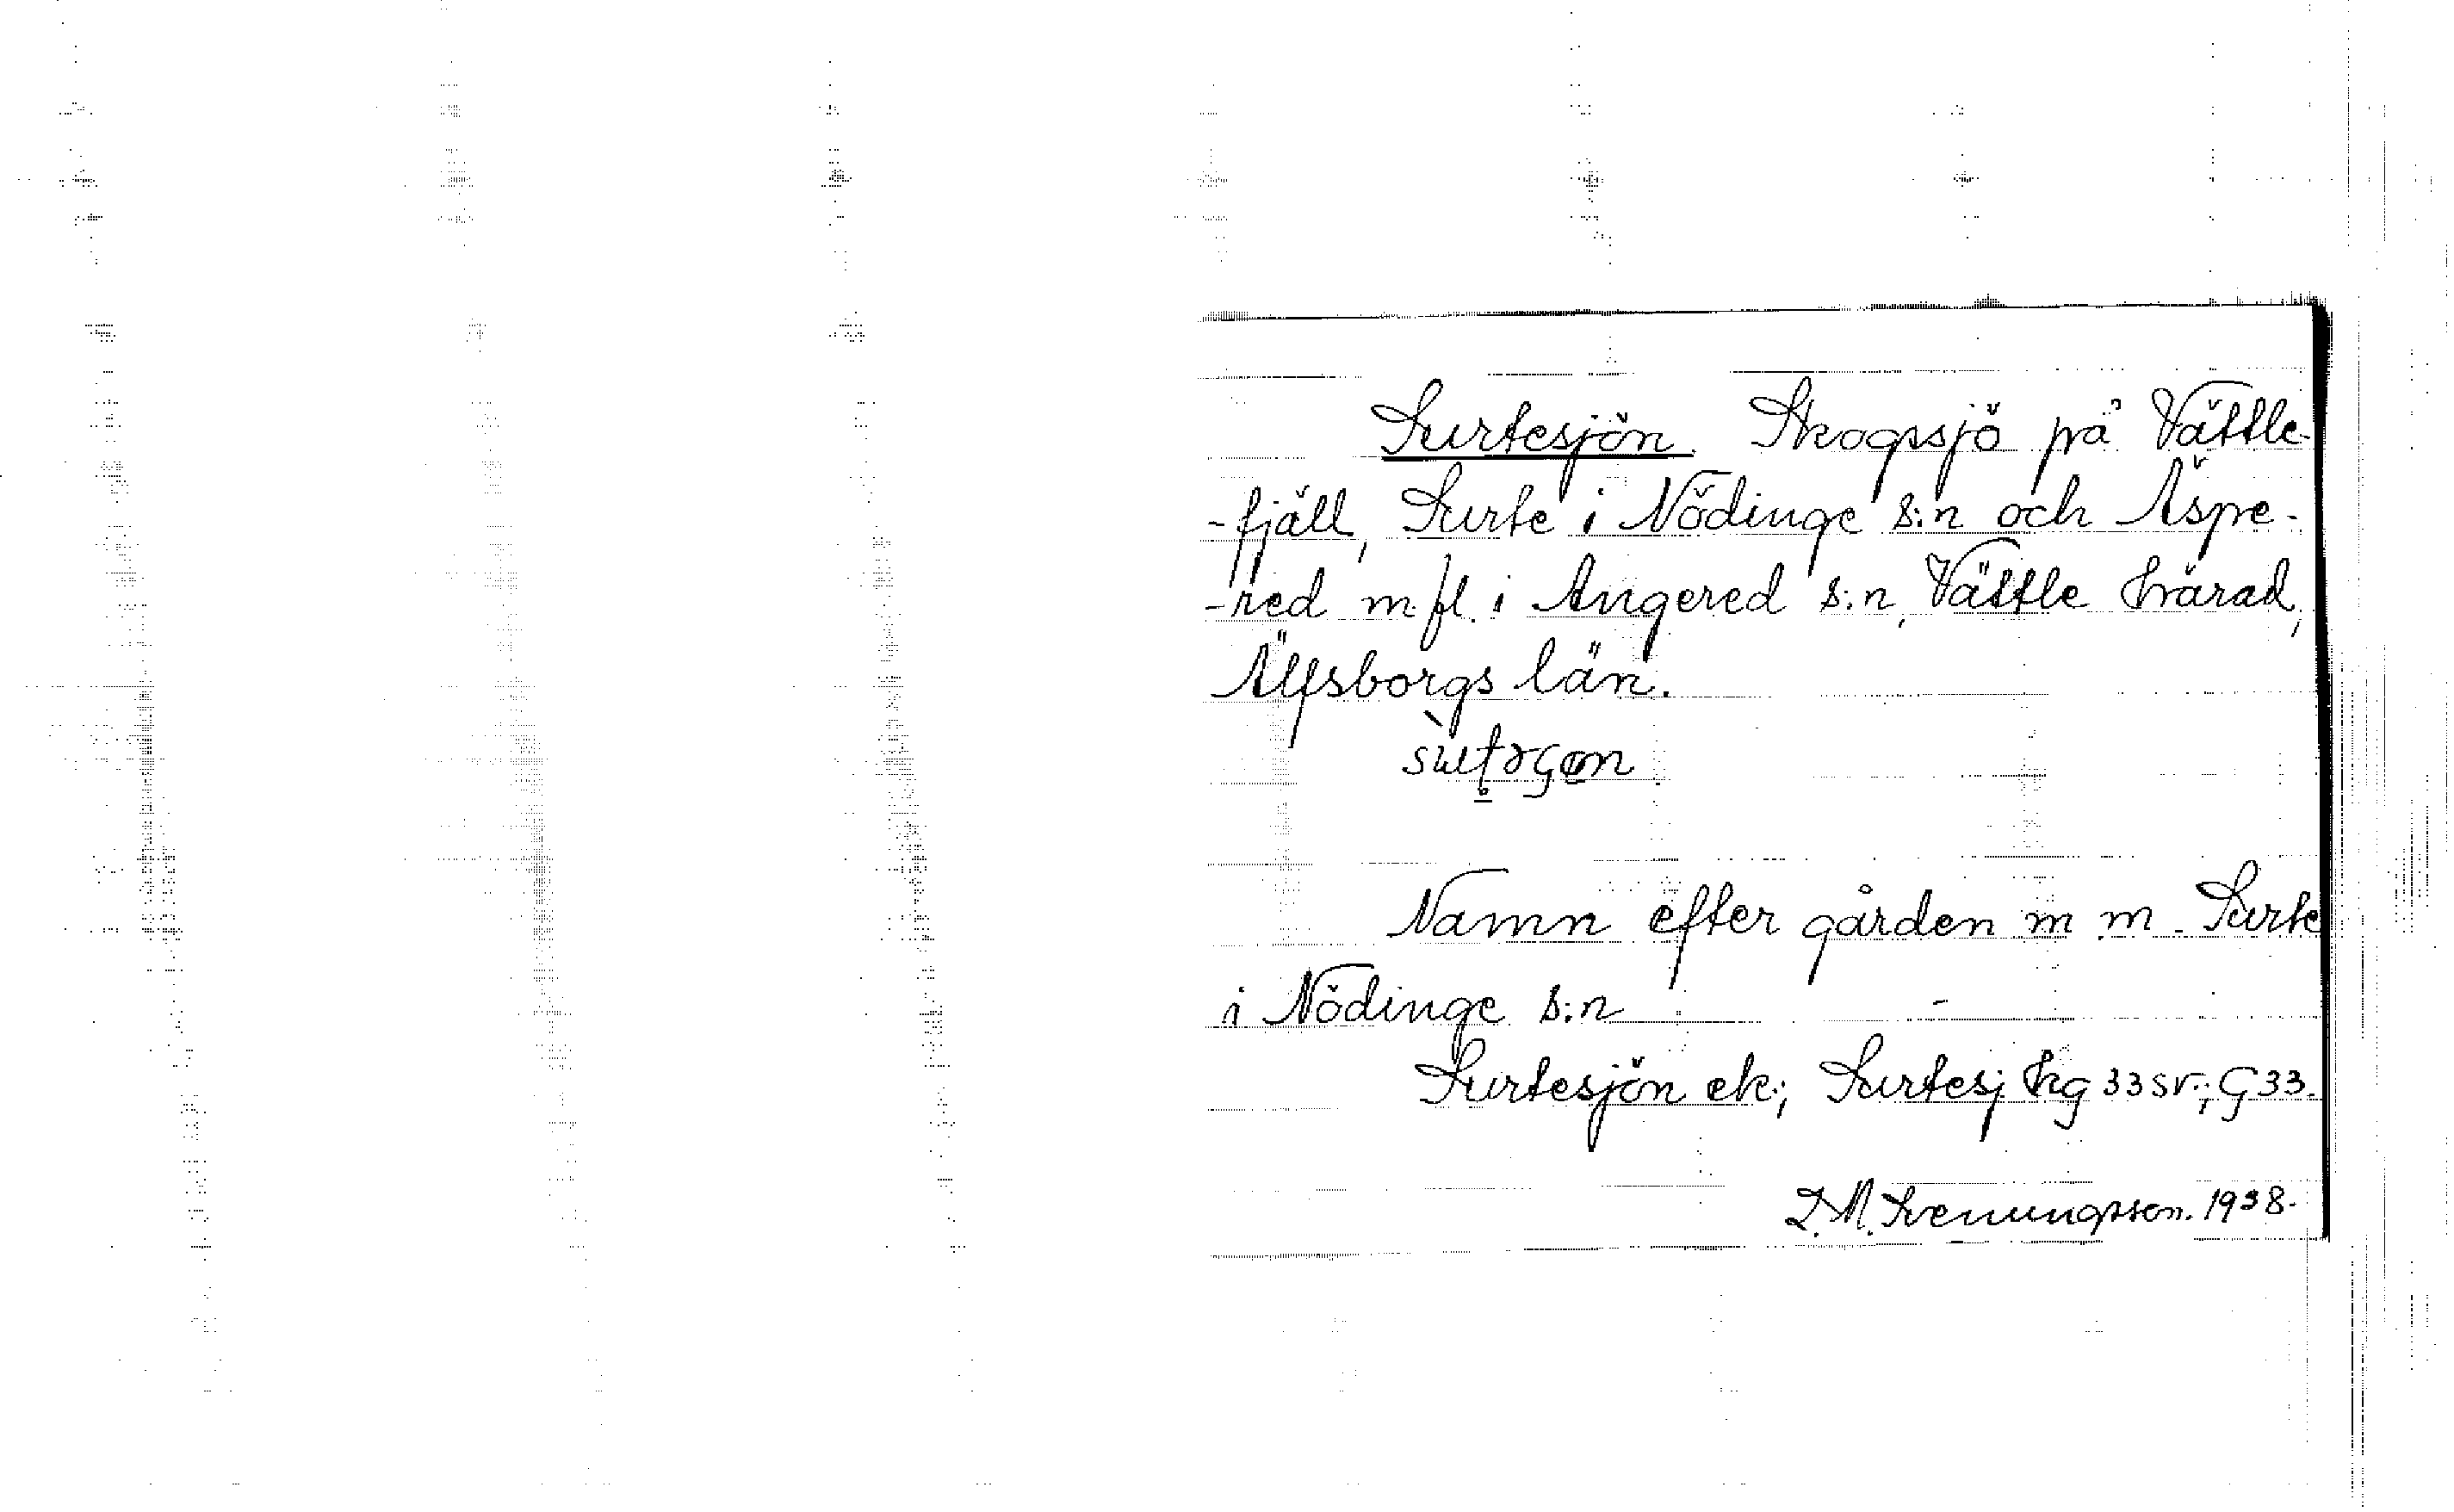 Surtesjön. Skogssjö på Vättle-
-fjäll, Surte i Nödinge s:n och Äspe-
-red m. fl. i Angered s:n, Vättle härad,
Älfsborgs län.
Namn efter gården m. m. Surte
i Nödinge s:n
Surtesjön ek.; Surtesj Hg 33 sv.; G 33.
1938.